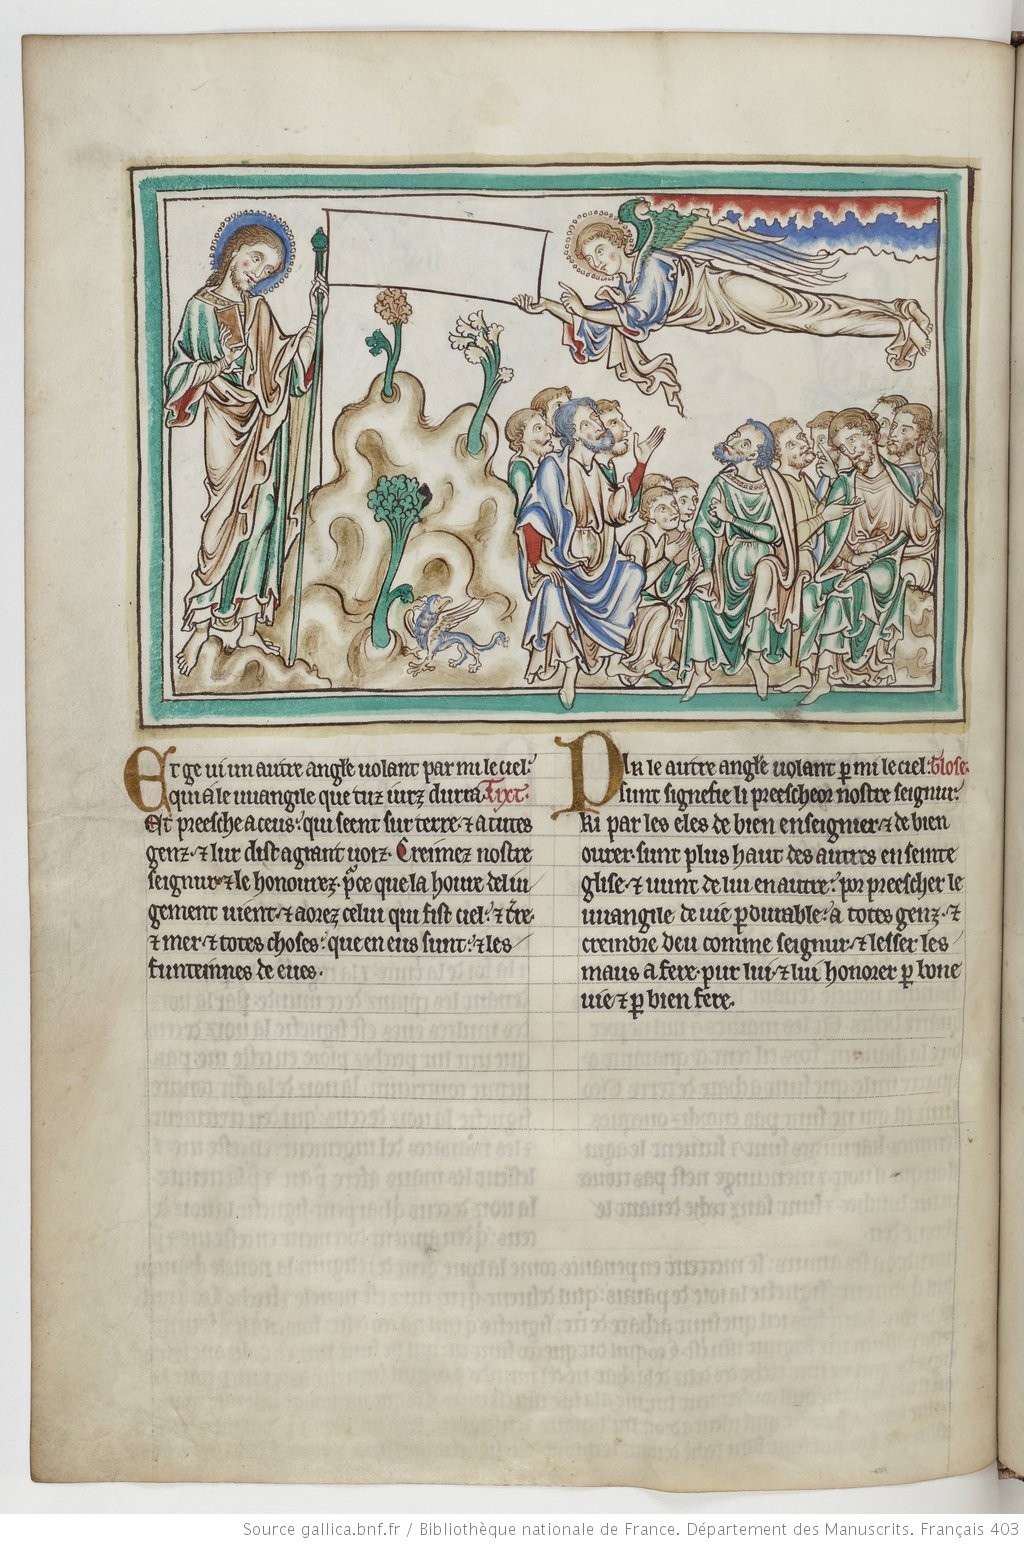 Et ge vi un autre angle volant par mi le ciel:
qui a le wangile que tuz iurz durra. Tixt.
Et preesche a ceus: qui seent sur terre. ⁊ a tutes
genz. ⁊ lur dist a grant voiz. Creimez nostre
seignur ⁊ le honourez. pce que la houre de iu
gement vient. ⁊ aorez celui qui fist ciel: ⁊ tre.
⁊ mer. ⁊ totes choses: que en eus sunt: ⁊ les
funteinnes de eues.
Pur le autre angle volant p mi le ciel: Glose.
sunt signefie li preescheor nostre seignur.
Ki par les eles de bien enseignier. ⁊ de bien
ourer. sunt plus haut des autres en seinte
glise. ⁊ vunt de lui en autre: por preescher le
wangile de vie pdurable: a totes genz. ⁊
creindre deu comme seignur. ⁊ lesser les
maus a fere. pur lui. ⁊ lui honorer p bone
vie ⁊ p bien fere.
Source gallica.bnf.fr / Bibliothèque nationale de France. Département des Manuscrits. Français 403